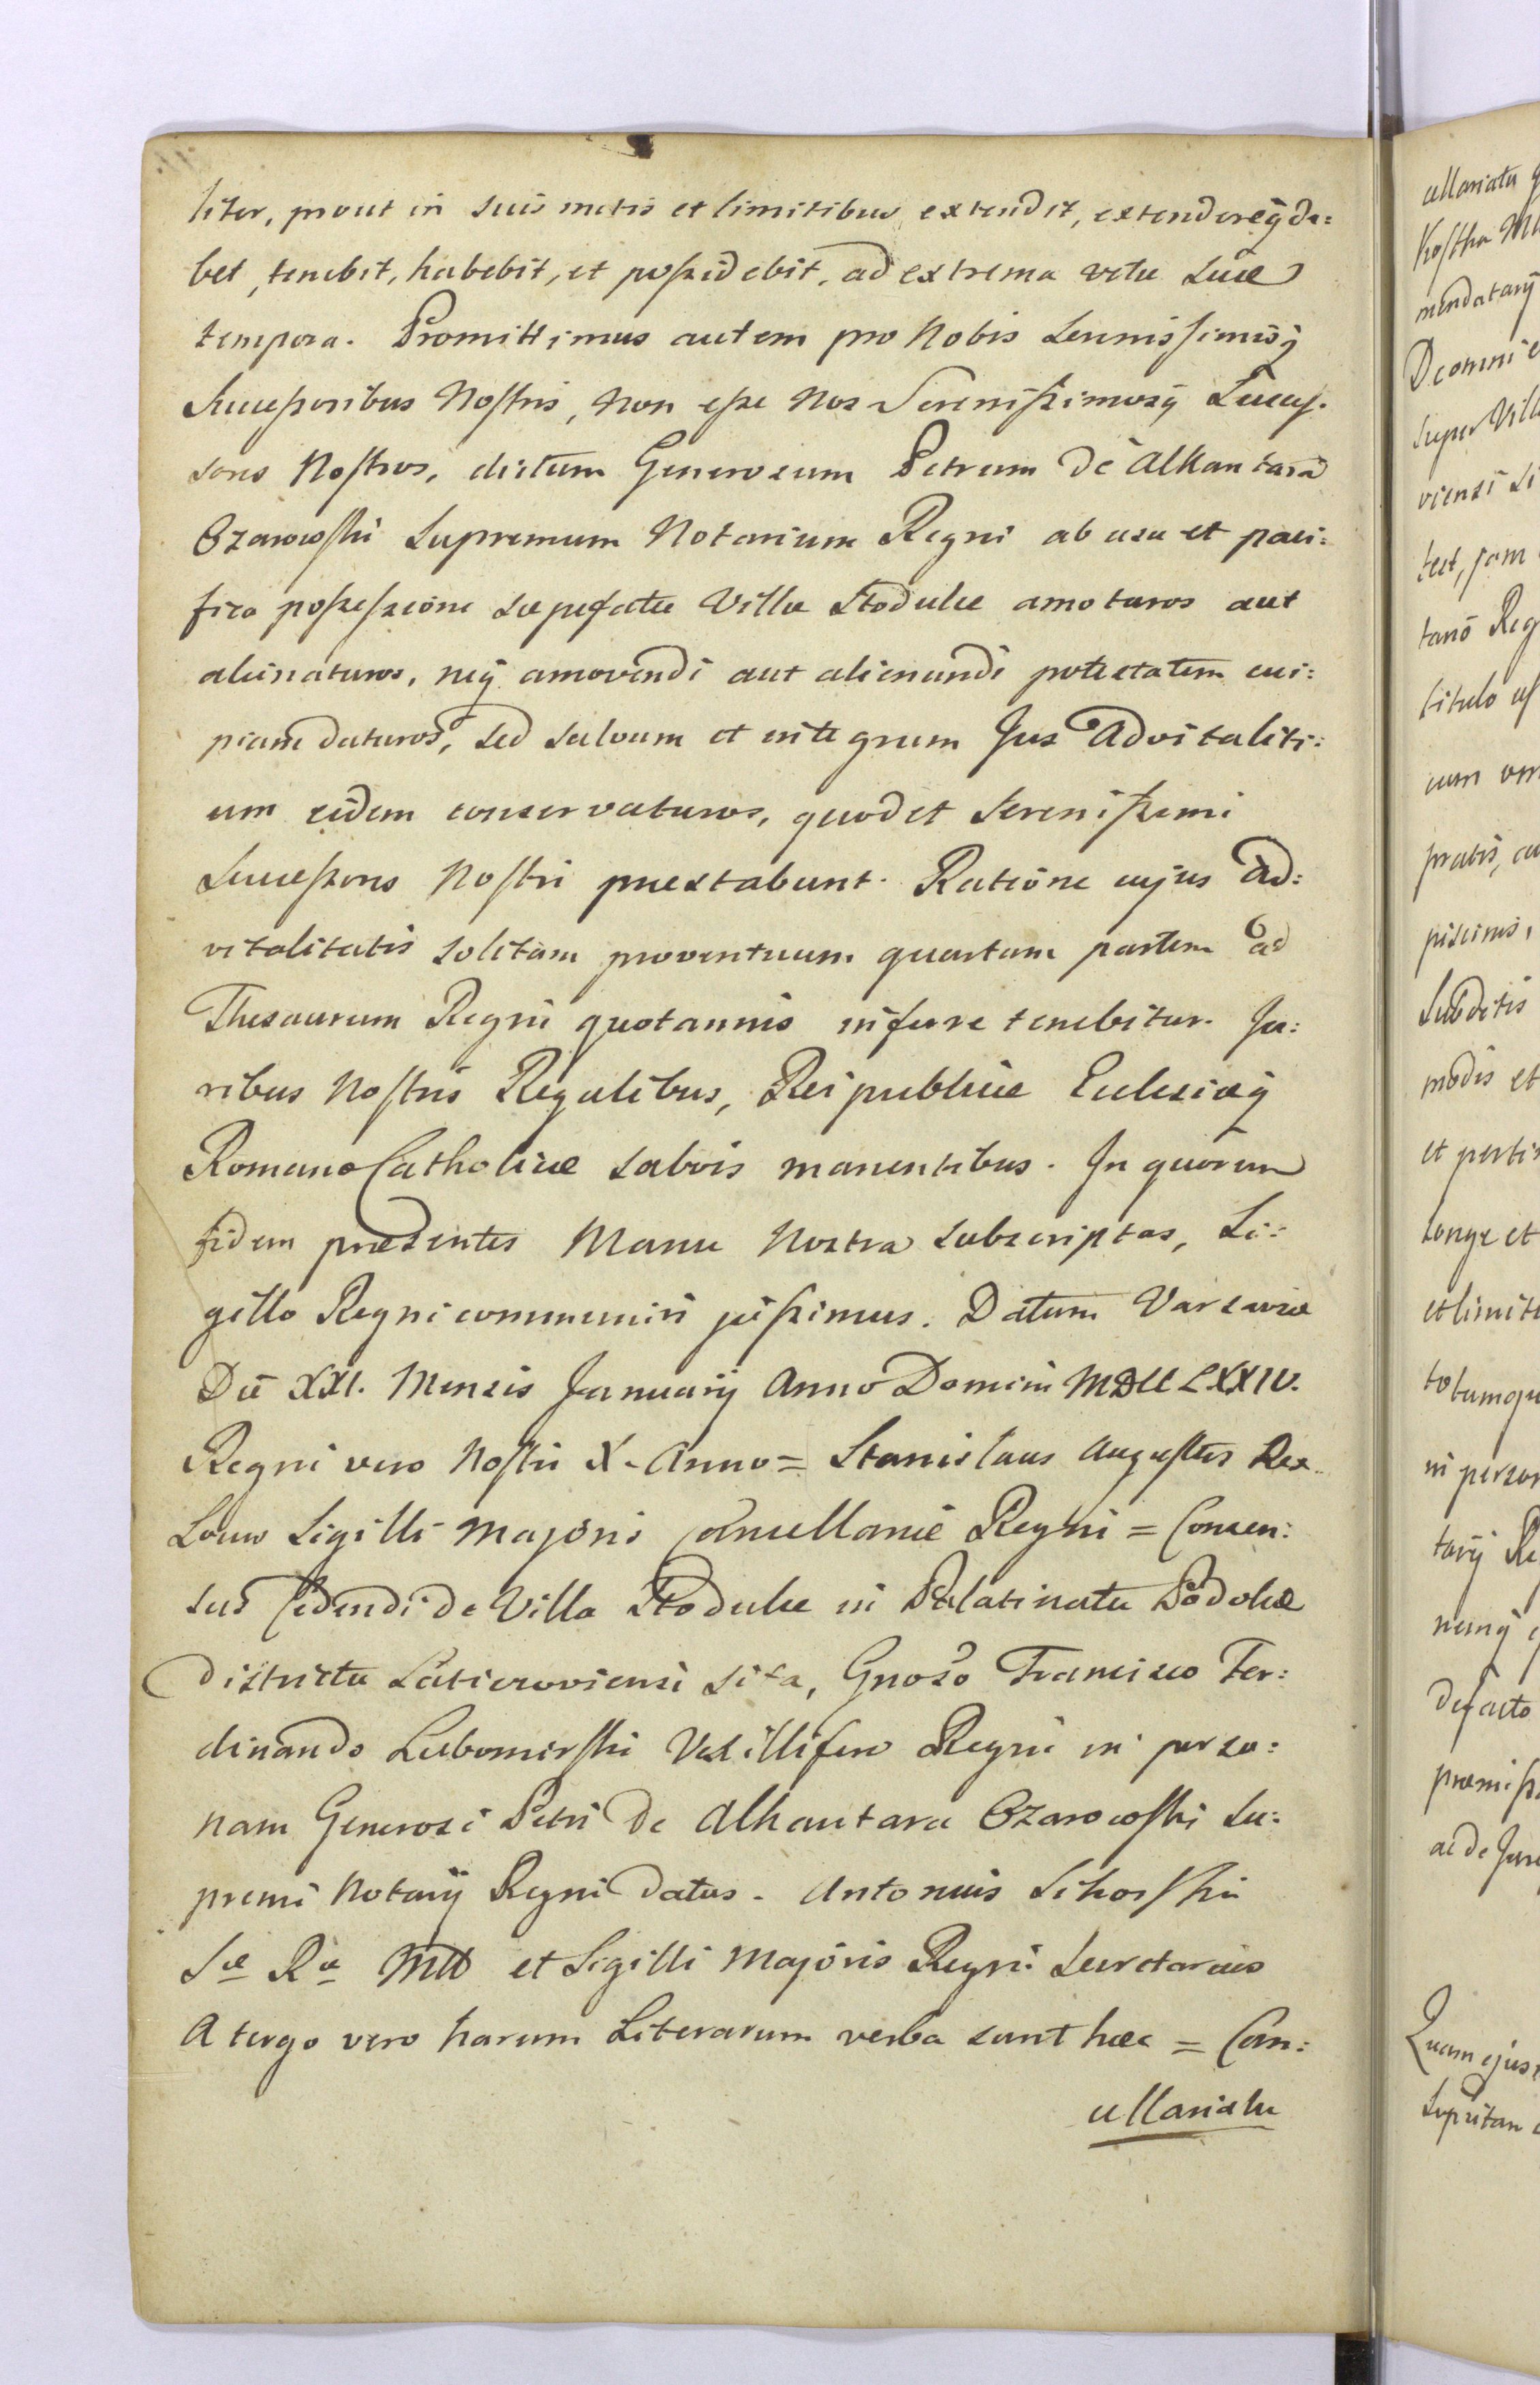 liter, prout in suis metis et limitibus extendit, extendereq̃ de:
bet, tenebit, habebit, et poßidebit, ad extrema vitæ suæ
tempora. Promittimus autem pro Nobis Sernissimisq̃
Succeßoribus Nostris, Non eße Nos Serenißimosq̃ Succes-
sores Nostros, dictum Generosum Petrum de Alkantara
Ozarowski Supremum Notarium Regni ab usu et paci:
fica poßeßione sæpefatæ Villæ Stodulce amoturos aut
alienaturos, neq̃ amovendi aut alienandi potestatem cui:
piam daturos, sed salvum et integrum Jus Advitaliti:
um eidem conservaturos, quod et Serenißimi
Succeßores Nostri præstabunt. Ratione cujus Ad:
vitalitatis solitam proventuum quartam partem ad
Thesaurum Regni quotannis inferre tenebitur. Ju:
ribus Nostris Regalibus, Reipublicæ Ecclesiæq̃
Romano Catholicæ salvis manentibus. In quorum
fidem præsentes Manu Nostra subscriptas, Si:
gillo Regni communiri jußimus. Datum Varsaviæ
Die XXI. Mensis Januarij Anno Domini MDCCLXXIV.
Regni vero Nostri X. Anno = Stanislaus Augustus Rex.
Locus Sigilli Majoris Cancellariæ Regni = Consen:
sus Cedendi de Villa Stodulce in Palatinatu Podoliæ
Districtu Laticzoviensi sita, Gnoso Francisco Fer:
dinando Lubomirski Vexillifero Regni in perso:
nam Generosi Petri de Alkantara Ozarowski Su:
premi Notarij Regni datus. Antonius Sikorski
Sæ Ræ Mtt et Sigilli Majoris Regni Secretarius
A tergo vero harum Literarum verba sunt hæc = Can:
cellariatu
cellariatu
Kostka
mendatarij
De omni
super Vill
viensi si
tect, jam
tario Reg
titulo
cum
pratis,
piscinis,
Subditis
modis et
et perti
longe et
et limit
totumqu
in person
tarij Re
nemq̃
defacto
præmiß
ac de Jure
Quam ejus